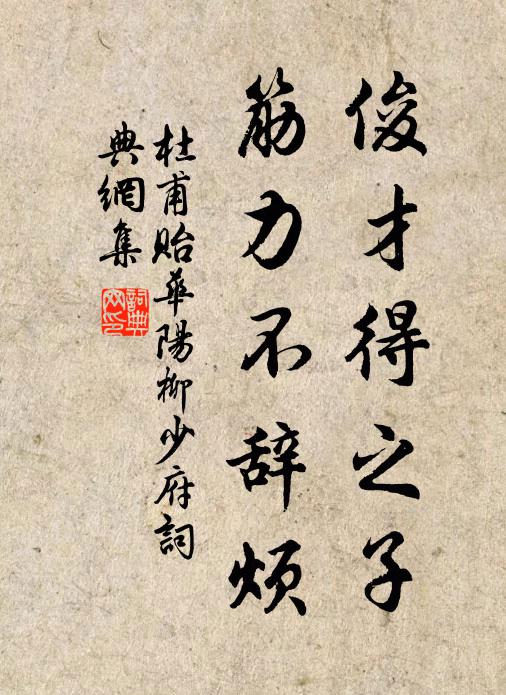 俊才得之子
筋力不辞烦
杜甫貽華陽柳少府詞
典網集
詞典
网印